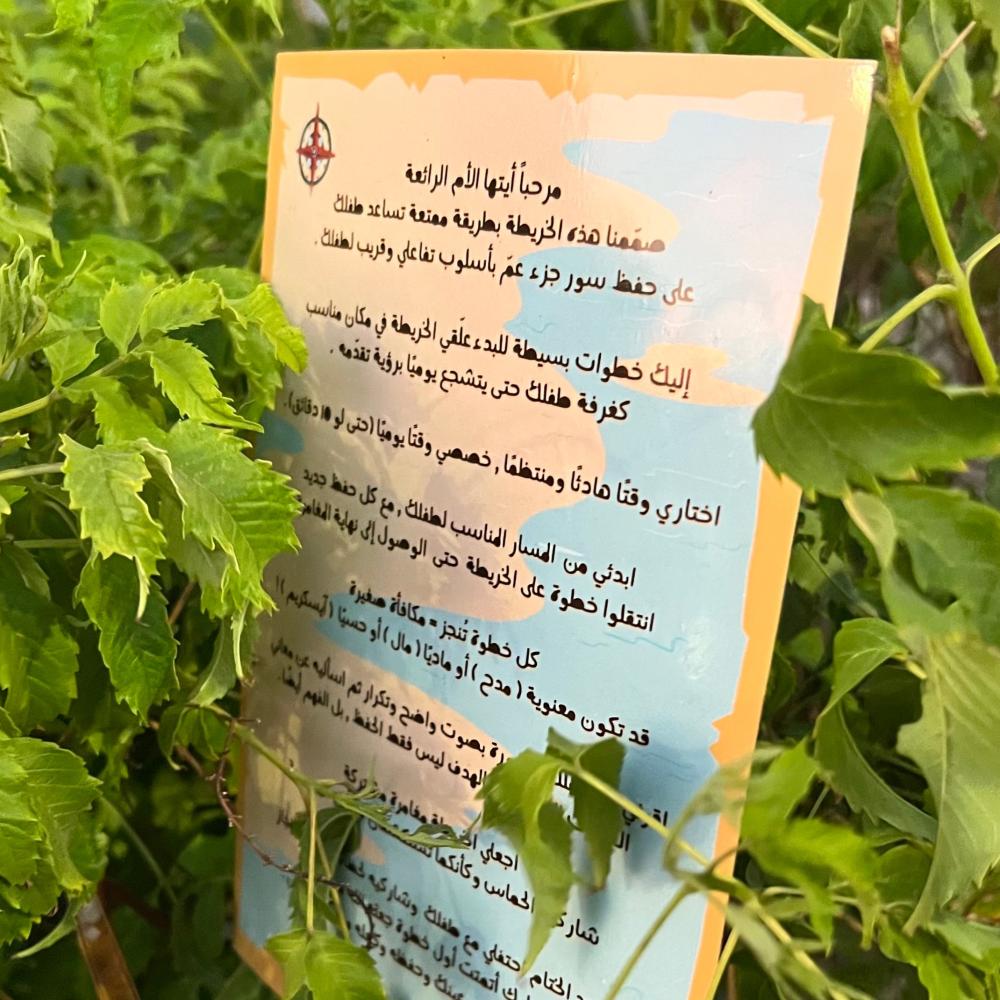 مرحباً أيتها الأم الرائعة
صمّمنا هذه الخريطة بطريقة ممتعة تساعد طفلك
على حفظ سور جزء عمّ بأسلوب تفاعلي وقريب لطفلك .
إليك خطوات بسيطة للبدء علّقي الخريطة في مكان مناسب
كغرفة طفلك حتى يتشجع يوميًا برؤية تقدّمه .
اختاري وقتًا هادئًا ومنتظمًا , خصصي وقتًا يوميًا (حتى لو 10 دقائق).
ابدئي من المسار المناسب لطفلك , مع كل حفظ جديد
انتقلوا خطوة على الخريطة حتى الوصول إلى نهاية
كل خطوة تُنجز = مكافأة صغيرة
قد تكون معنوية ( مدح ) أو ماديًا ( مال ) أو حسيًا ( آيسكريم )!
بصوت واضح وتكرار ثم اسأليه عن معاني
الهدف ليس فقط الحفظ , بل الفهم أيضًا.
اجعلي مغامرة
الحماس وكأنكما
احتفلي مع طفلك وشاركيه
أتممت أول خطوة
وحفظه